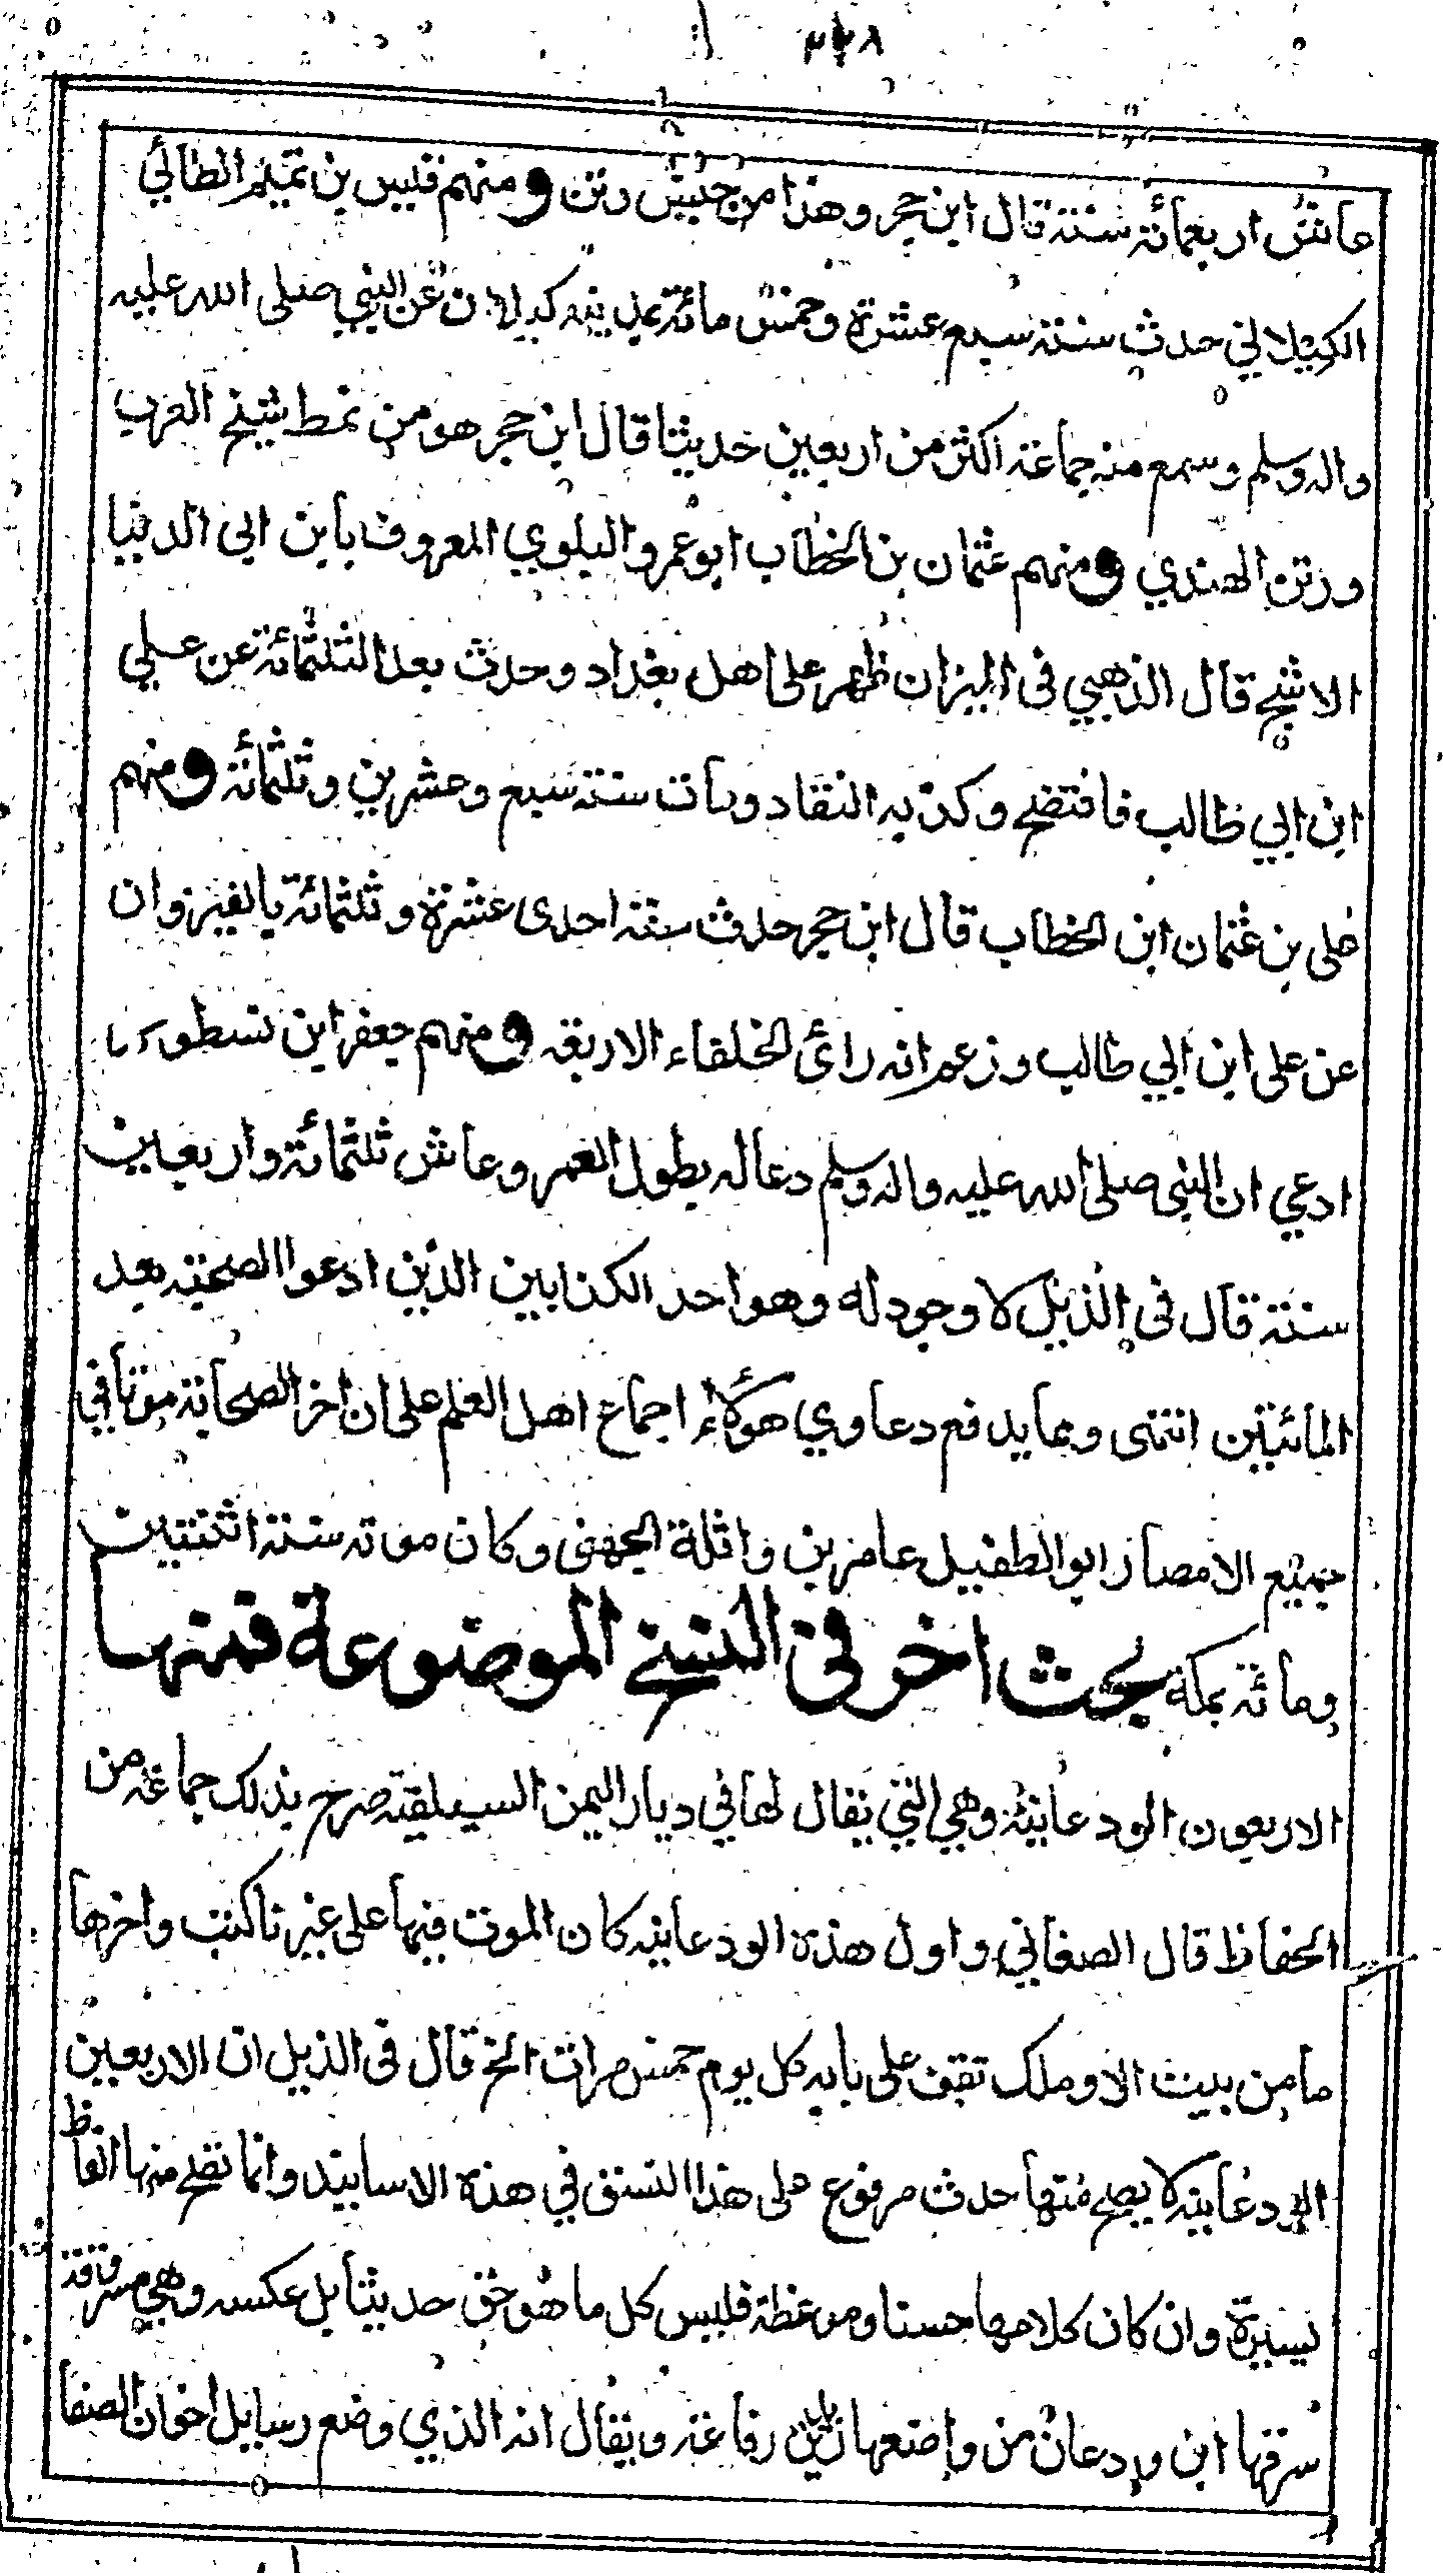 عاش اربعمائة سنة قال ابن حجر وهذا من جنس رتن ومنهم قيس بن تميم الطائي
الكيلاني حدث سنة سبع عشرة وخمس مائة بمدينه كيلان عن النبي صلى الله عليه
واله وسلم وسمع منه جماعة اكثر من اربعين حديثا قال ابن حجر هو من نمط شيخ العرب
ورتن الهندي ومنهم عثمان بن الخطاب ابو عمرو البلوي المعروف بابن ابي الدنيا
الاشج قال الذهبي في الميزان ظهر على اهل بغداد وحدث بعد الثلثمائة عن علي
ابن ابي طالب فافتضح وكذبه النقاد ومات سنة سبع وعشرين وثلثمائة ومنهم
على بن عثمان ابن الخطاب قال ابن حجر حدث سنة احدى عشرة وثلثمائة بالقيروان
عن على ابن ابي طالب وزعم انه رائ الخلفاء الاربعه ومنهم جعفر ابن نسطور
ادعي ان النبي صلى الله عليه واله وسلم دعا له بطول العمر وعاش ثلثمائة واربعين
سنة قال في الذيل لا وجود له وهو احد الكذابين الذين ادعوا الصحبة بعد
المائتين انتهى ومما يدفع دعاوي هؤلاء اجماع اهل العلم على ان اخر الصحابة موتا في
جميع الامصار ابو الطفيل عامر بن واثلة الجهني وكان موته سنة اثنتين
ومائة بمكة بحث اخر في النسخ الموضوعة فمنها
الاربعون الودعانية وهي التي يقال لها في ديار اليمن السيلقية صرح بذلك جماعة من
الحفاظ قال الصغاني واول هذه الودعانيه كان الموت فيها على غيرنا كتب واخرها
ما من بيت الا وملك تقف على بابه كل يوم خمس مرات الخ قال في الذيل ان الاربعين
الودعانية لا يصح منها حدث مرفوع على هذا النسق في هذه الاسانيد وانما تصح منها الفاظ
يسيرة وان كان كلامها حسنا وموعظة فليس كل ما هو حق حديثا بل عكسه وهي مسرقة
سرقها ابن ودعان من واضعها زيد بن رفاعة ويقال انه الذي وضع رسايل اخوان الصفا